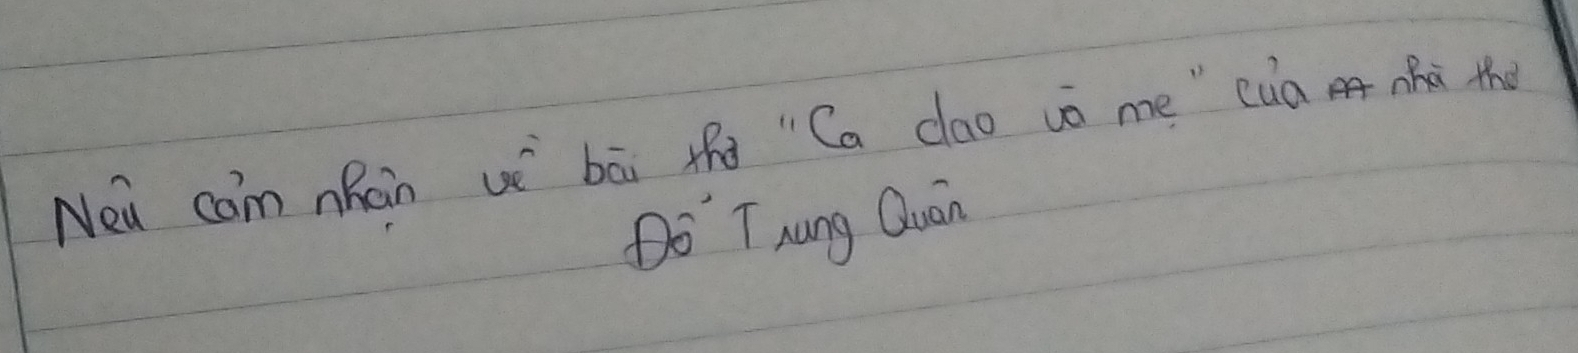 Nêu cảm nhận về bài thơ "Ca dao và mẹ" của nhà thơ
Đỗ Trung Quân